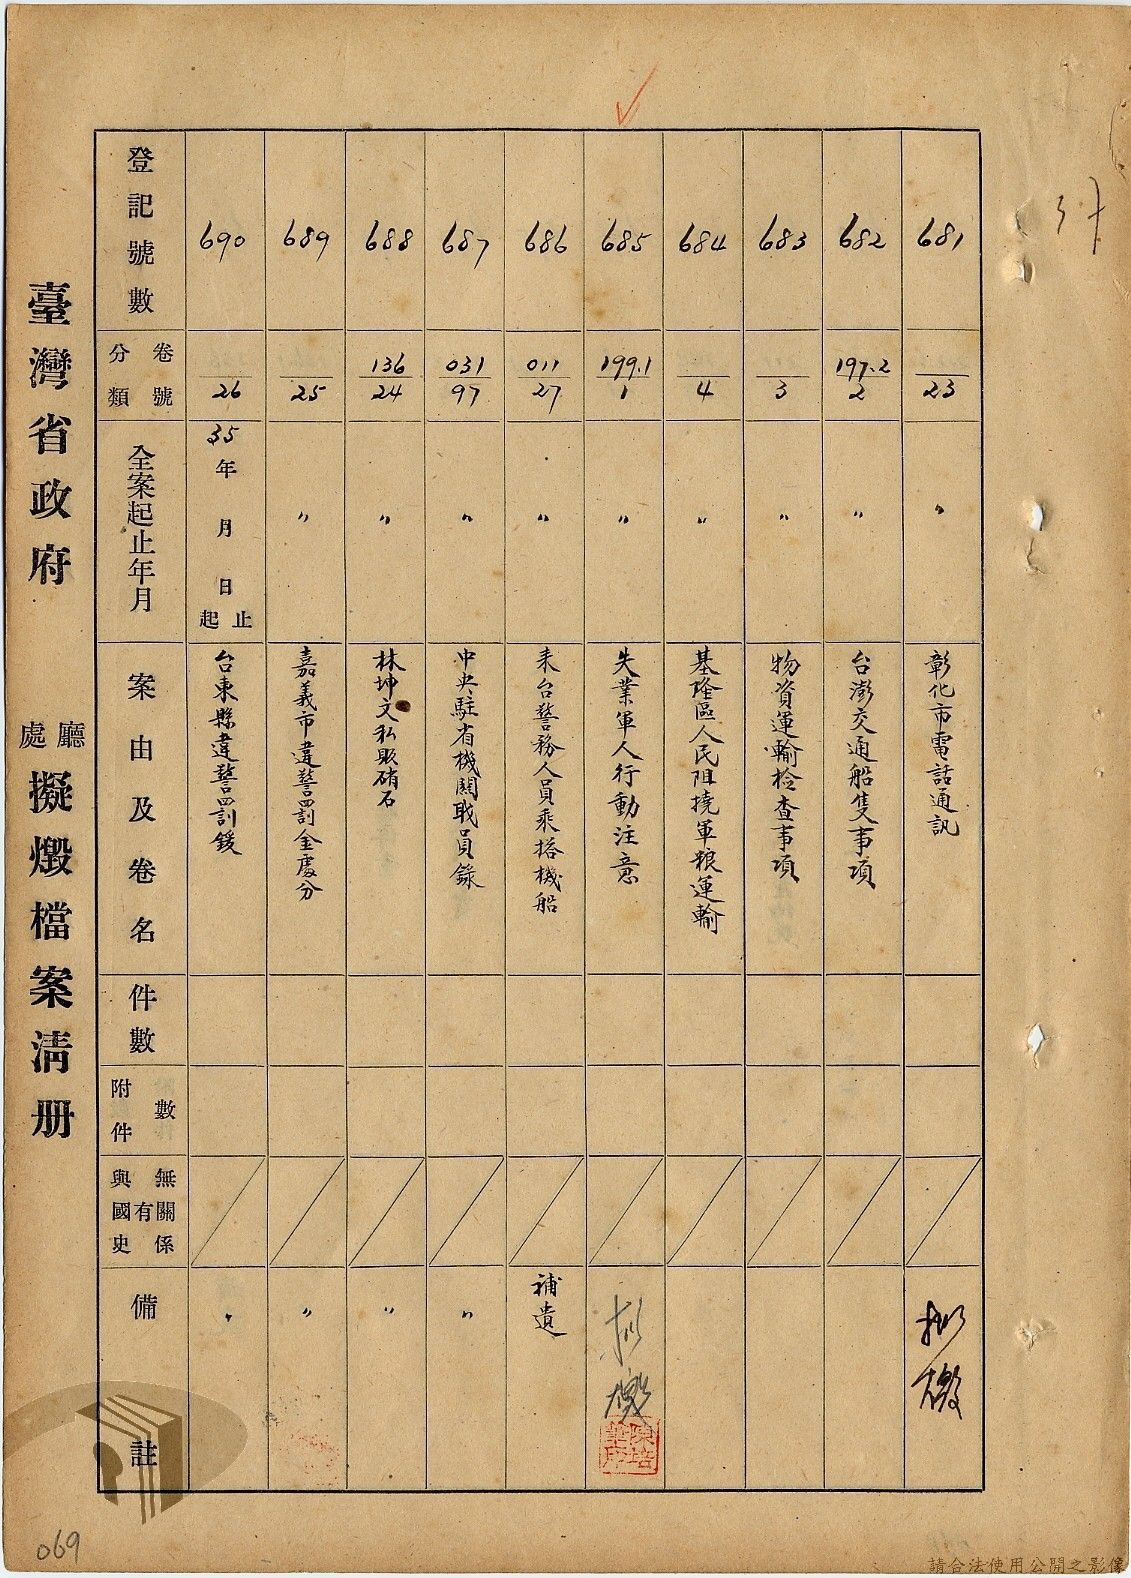 臺灣省政府
廳處
擬燬檔案清册
登記號數
分類 卷號
全案起止年月
案由及卷名
件數
附件數
與國史有無關係
備註
681
23
〃
彰化市電話通訊
682
197.2
2
〃
台澎交通船隻事項
683
3
〃
物資運輸检查事項
684
4
〃
基隆區人民阻撓軍粮運輸
685
199.1
1
〃
失業軍人行動注意
686
011
27
〃
來台警務人員乘搭機船
補遺
687
031
97
〃
中央駐省機關職員錄
〃
688
136
24
〃
林坤文私販硝石
〃
689
25
〃
嘉義市違警罰金處分
〃
690
26
35年 月 日起止
台東縣違警罰鍰
〃
陳培
069
請合法使用公開之影像